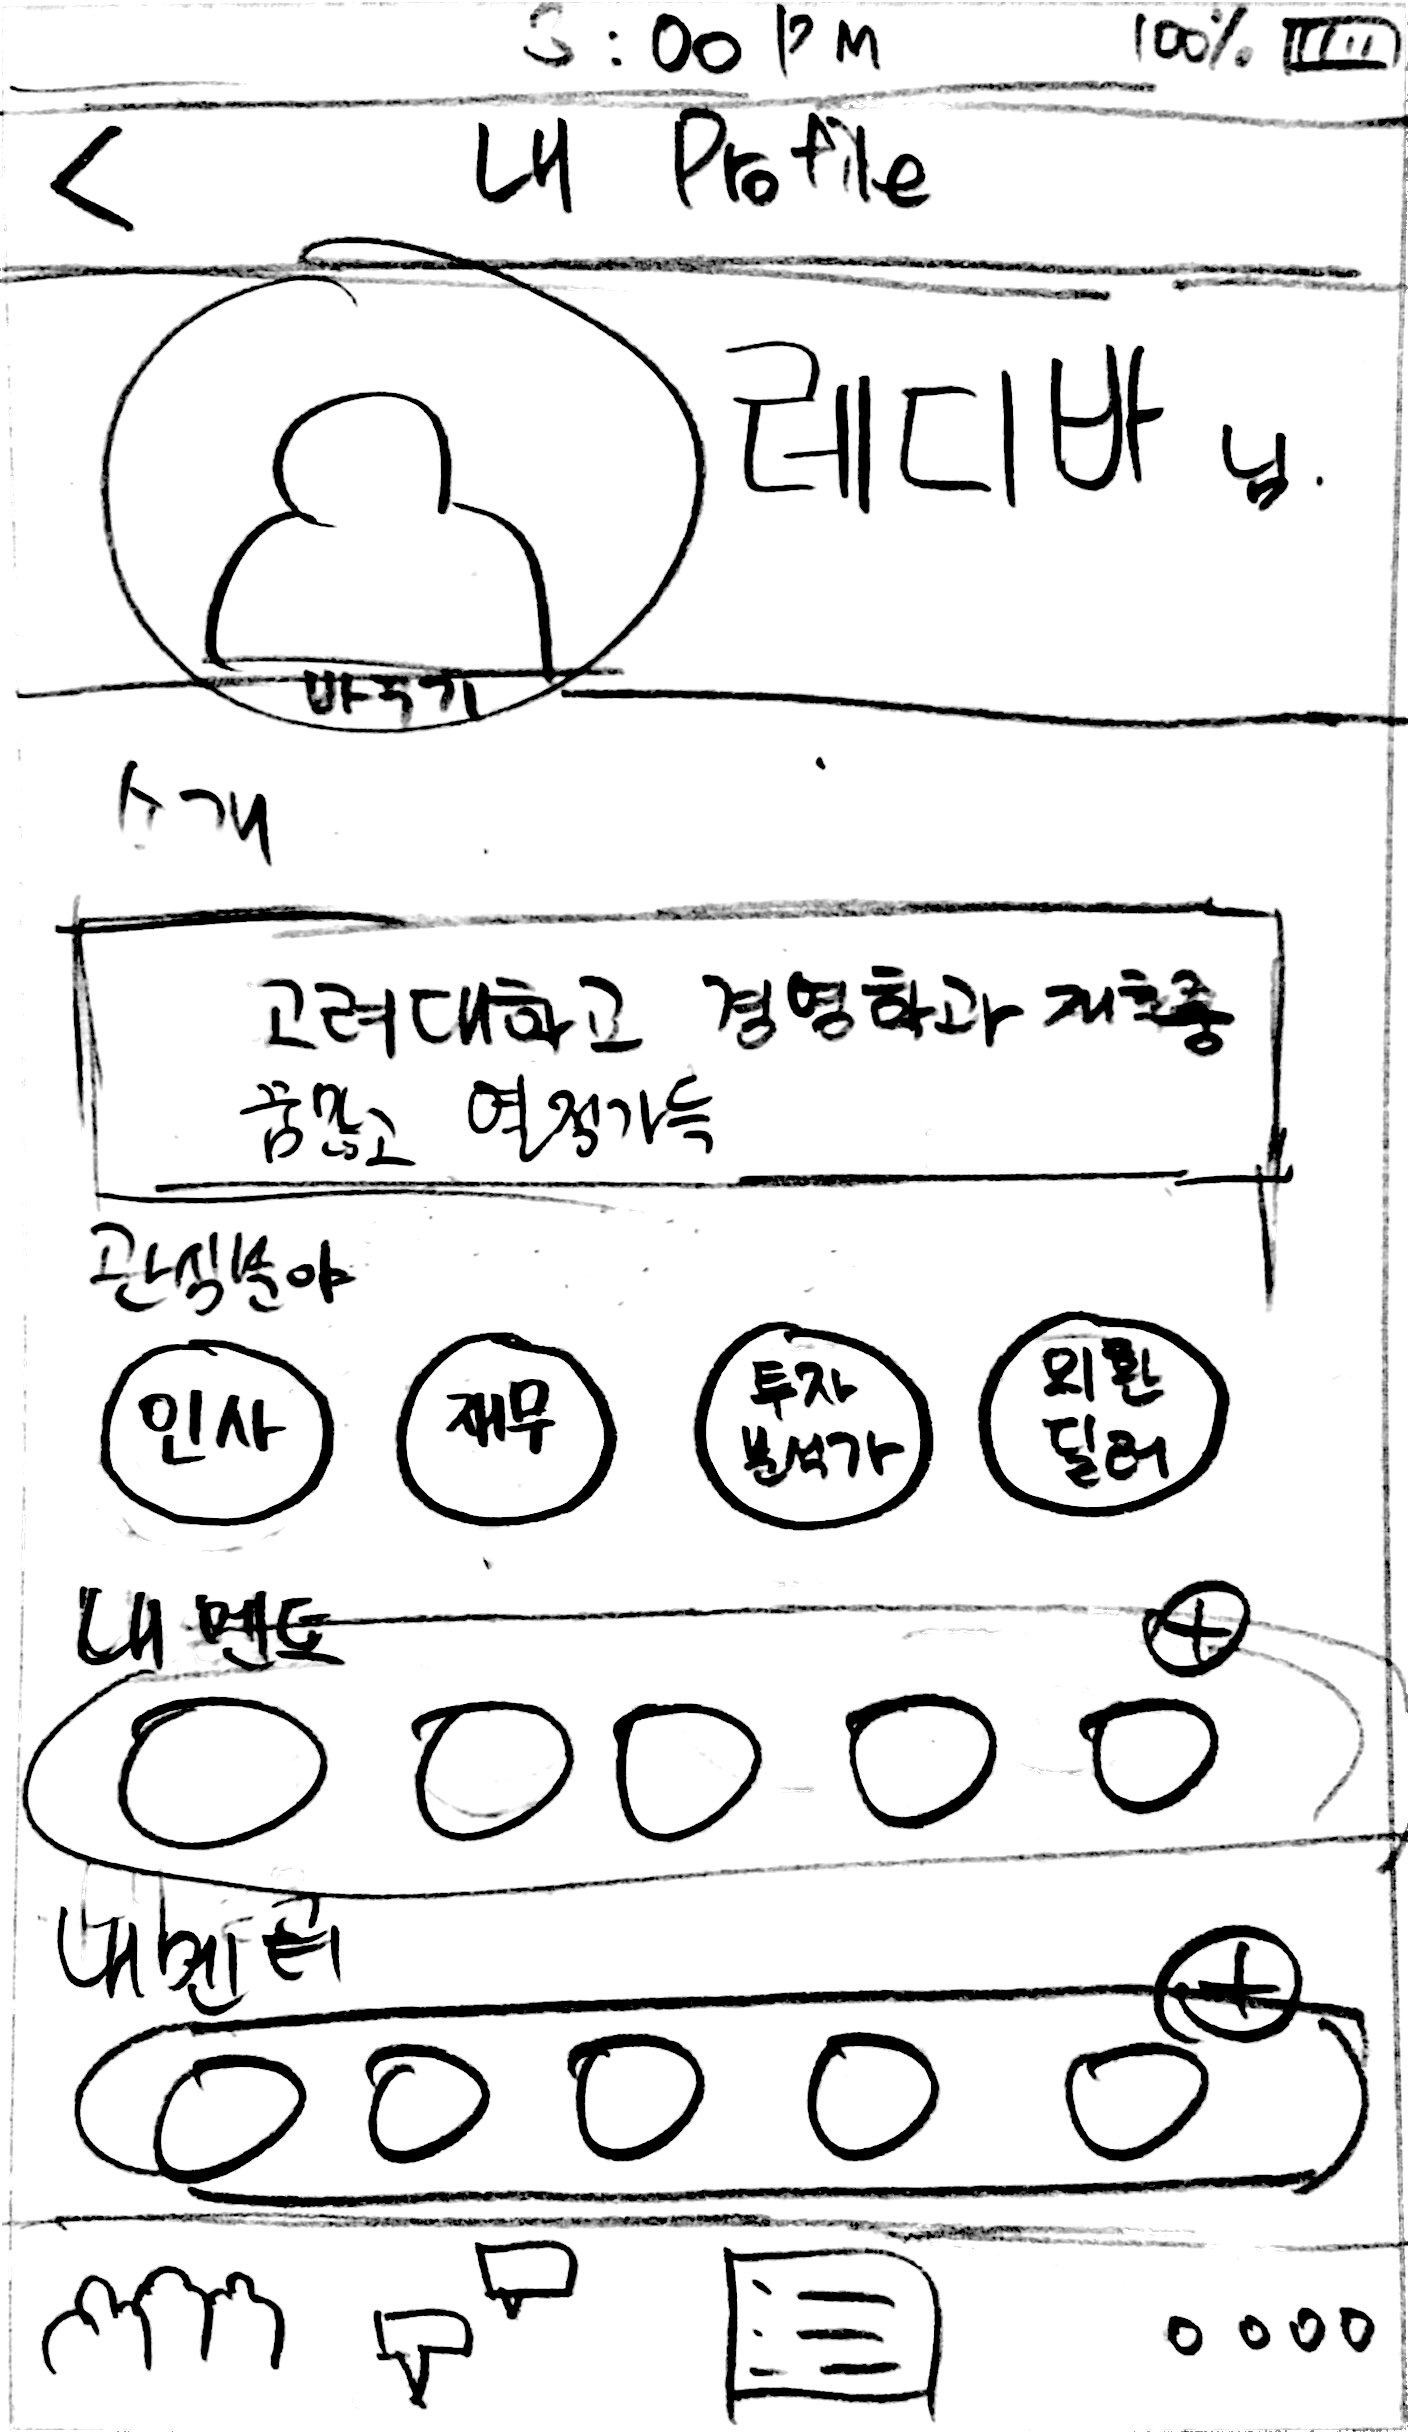 :00 PM 100%
<
내 Profile
레디바 님.
바꾸기
소개
고려대학고 경영학과 재학중
꿈많고 열정가득
관심분야
인사 재무 투자 분석가 외환 딜러
내 멘토 +
내 멘티 +